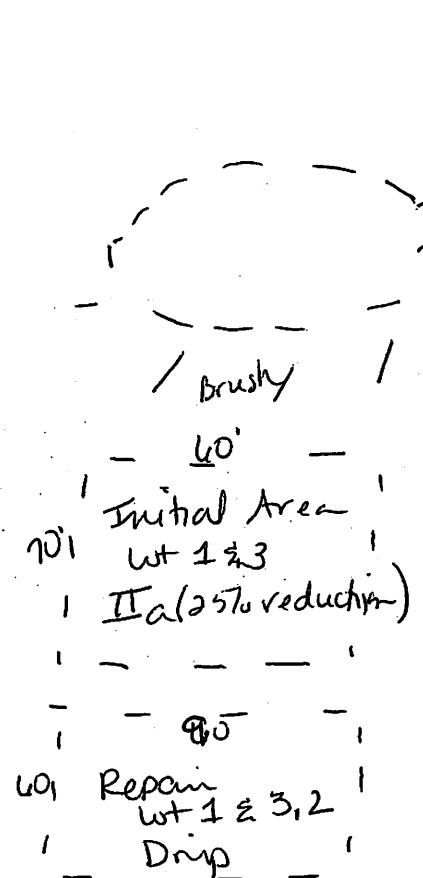 Brushy
40'
Initial Area
70'
wt 1 & 3
IIa (25% reduction)
Repair
wt 1 & 3, 2
Drip